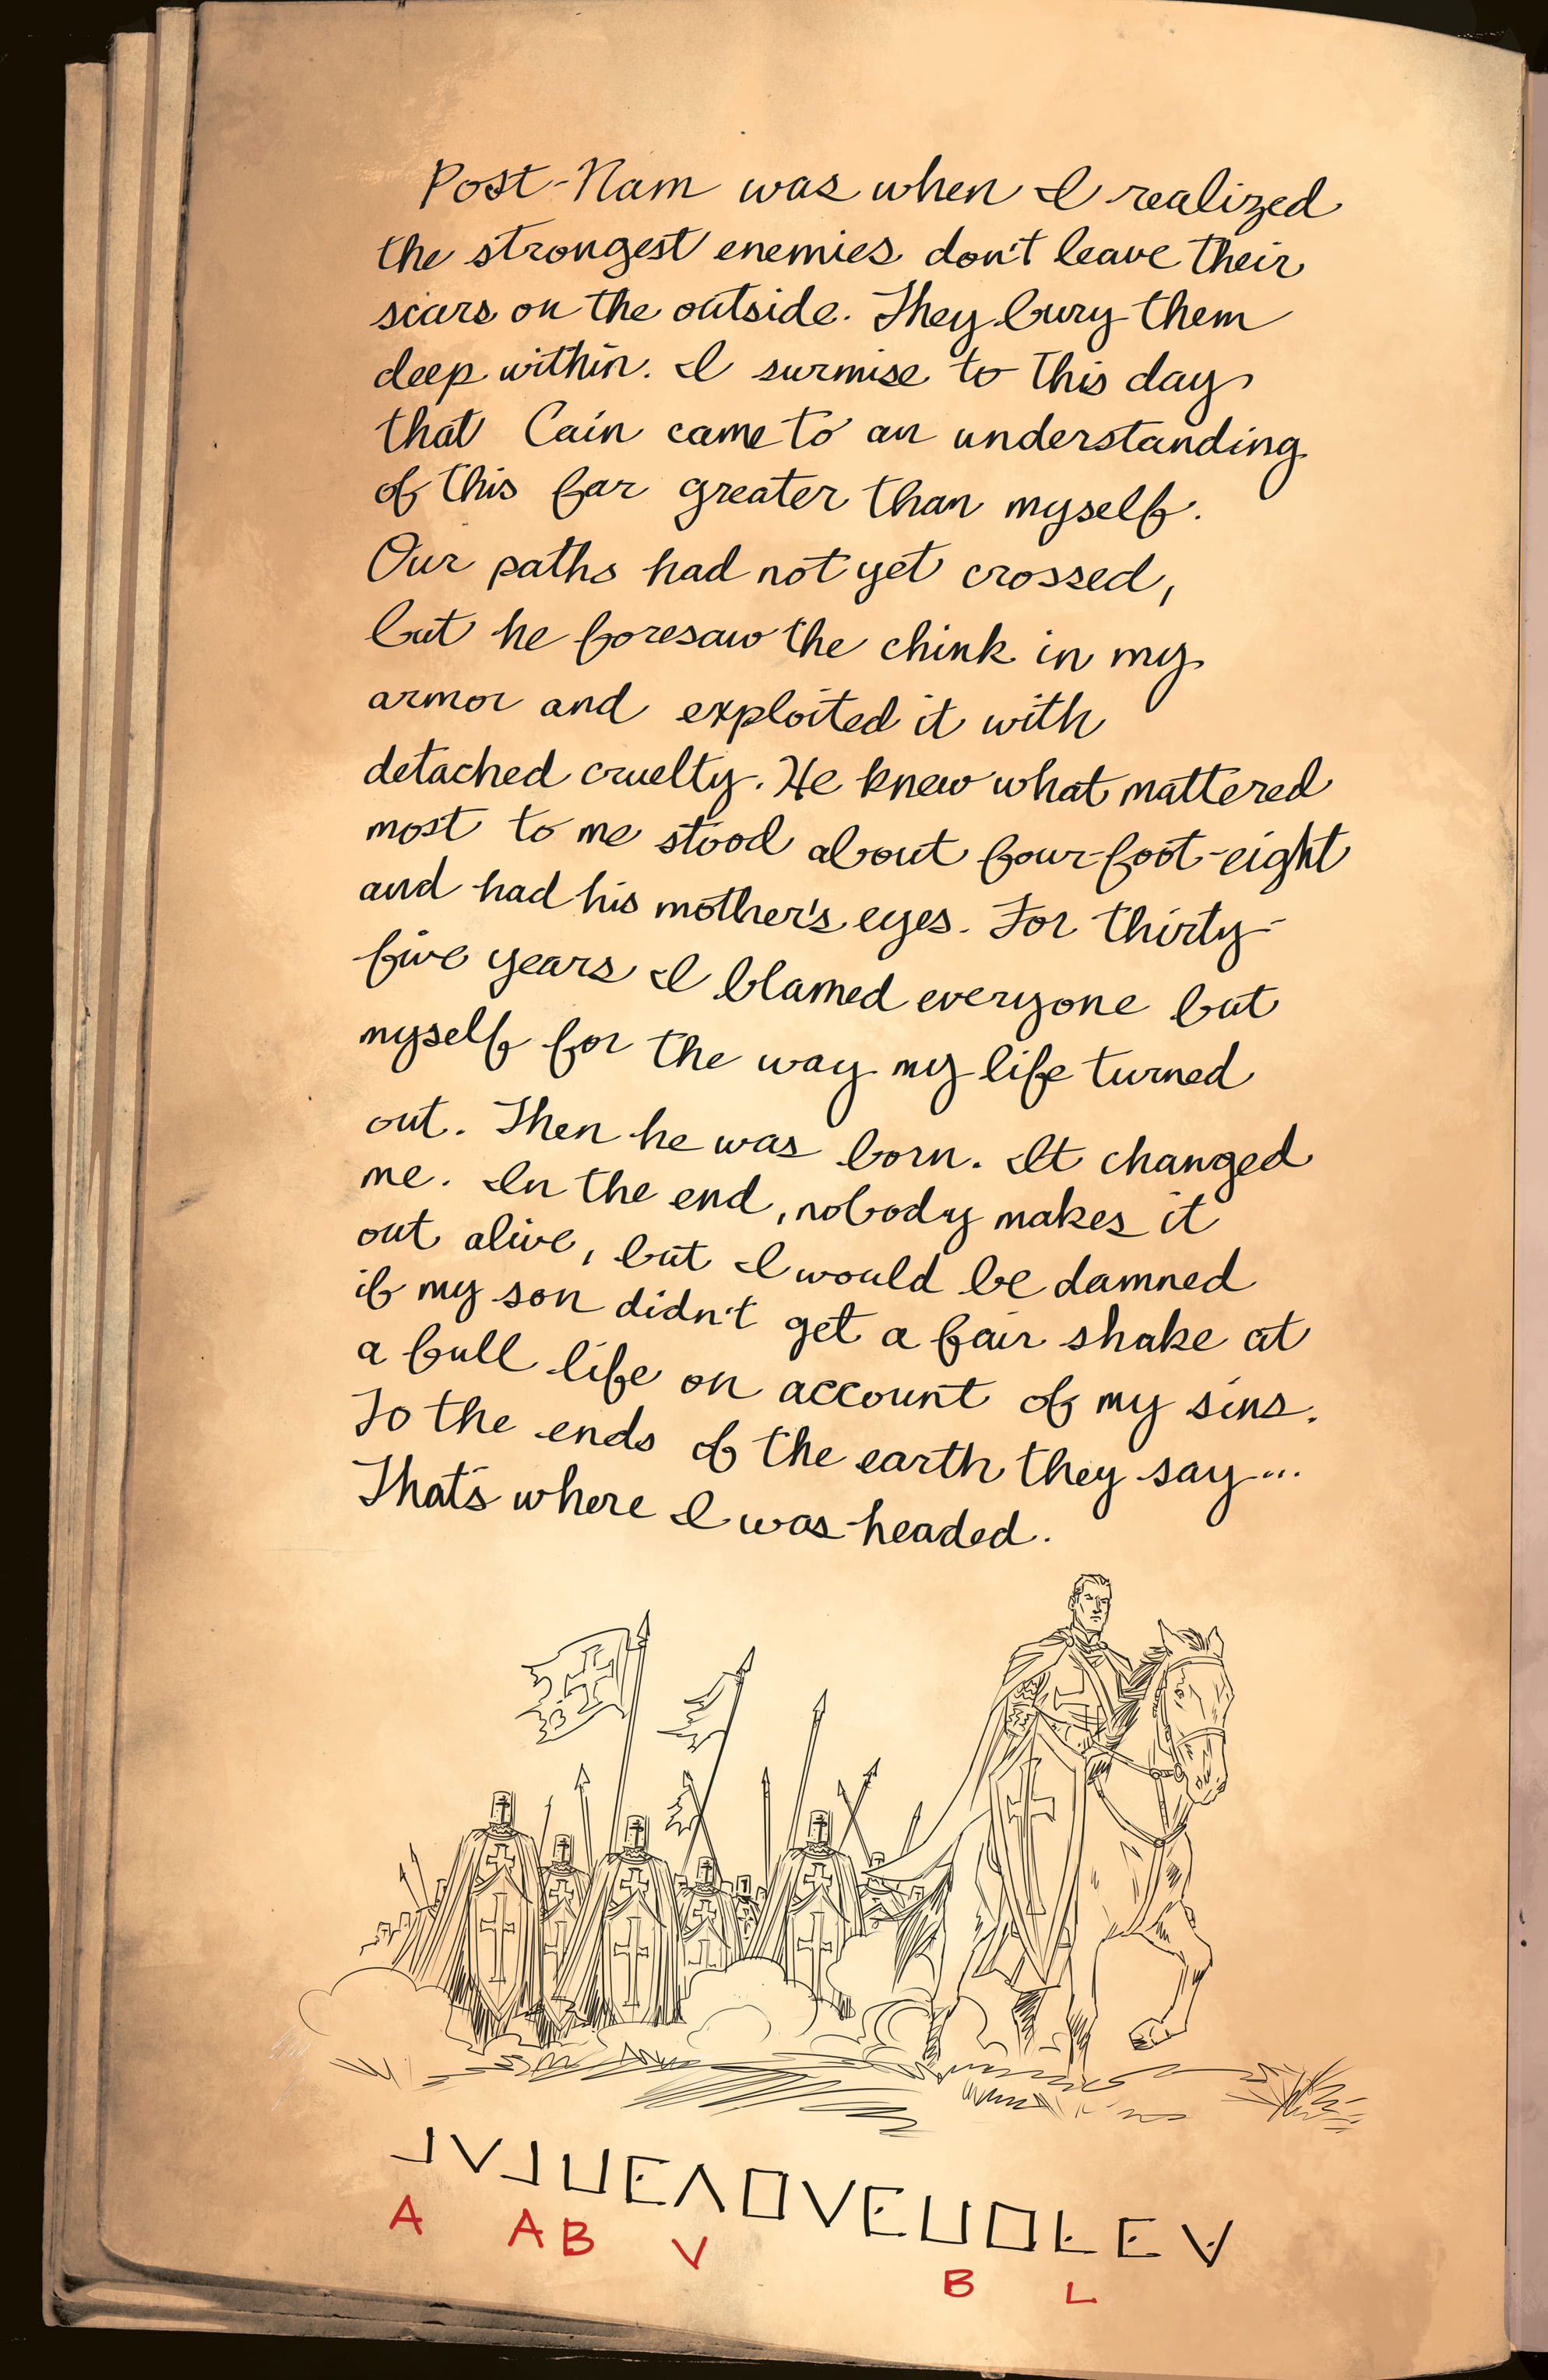 Post-Nam was when I realized
the strongest enemies don't leave their
scars on the outside. They bury them
deep within. I surmise to this day
that Cain came to an understanding
of this far greater than myself.
Our paths had not yet crossed,
but he foresaw the chink in my
armor and exploited it with
detached cruelty. He knew what mattered
most to me stood about four-foot-eight
and had his mother's eyes. For thirty-
five years I blamed everyone but
myself for the way my life turned
out. Then he was born. It changed
me. In the end, nobody makes it
out alive, but I would be damned
if my son didn't get a fair shake at
a full life on account of my sins.
To the ends of the earth they say...
That's where I was headed.
A A B V B L